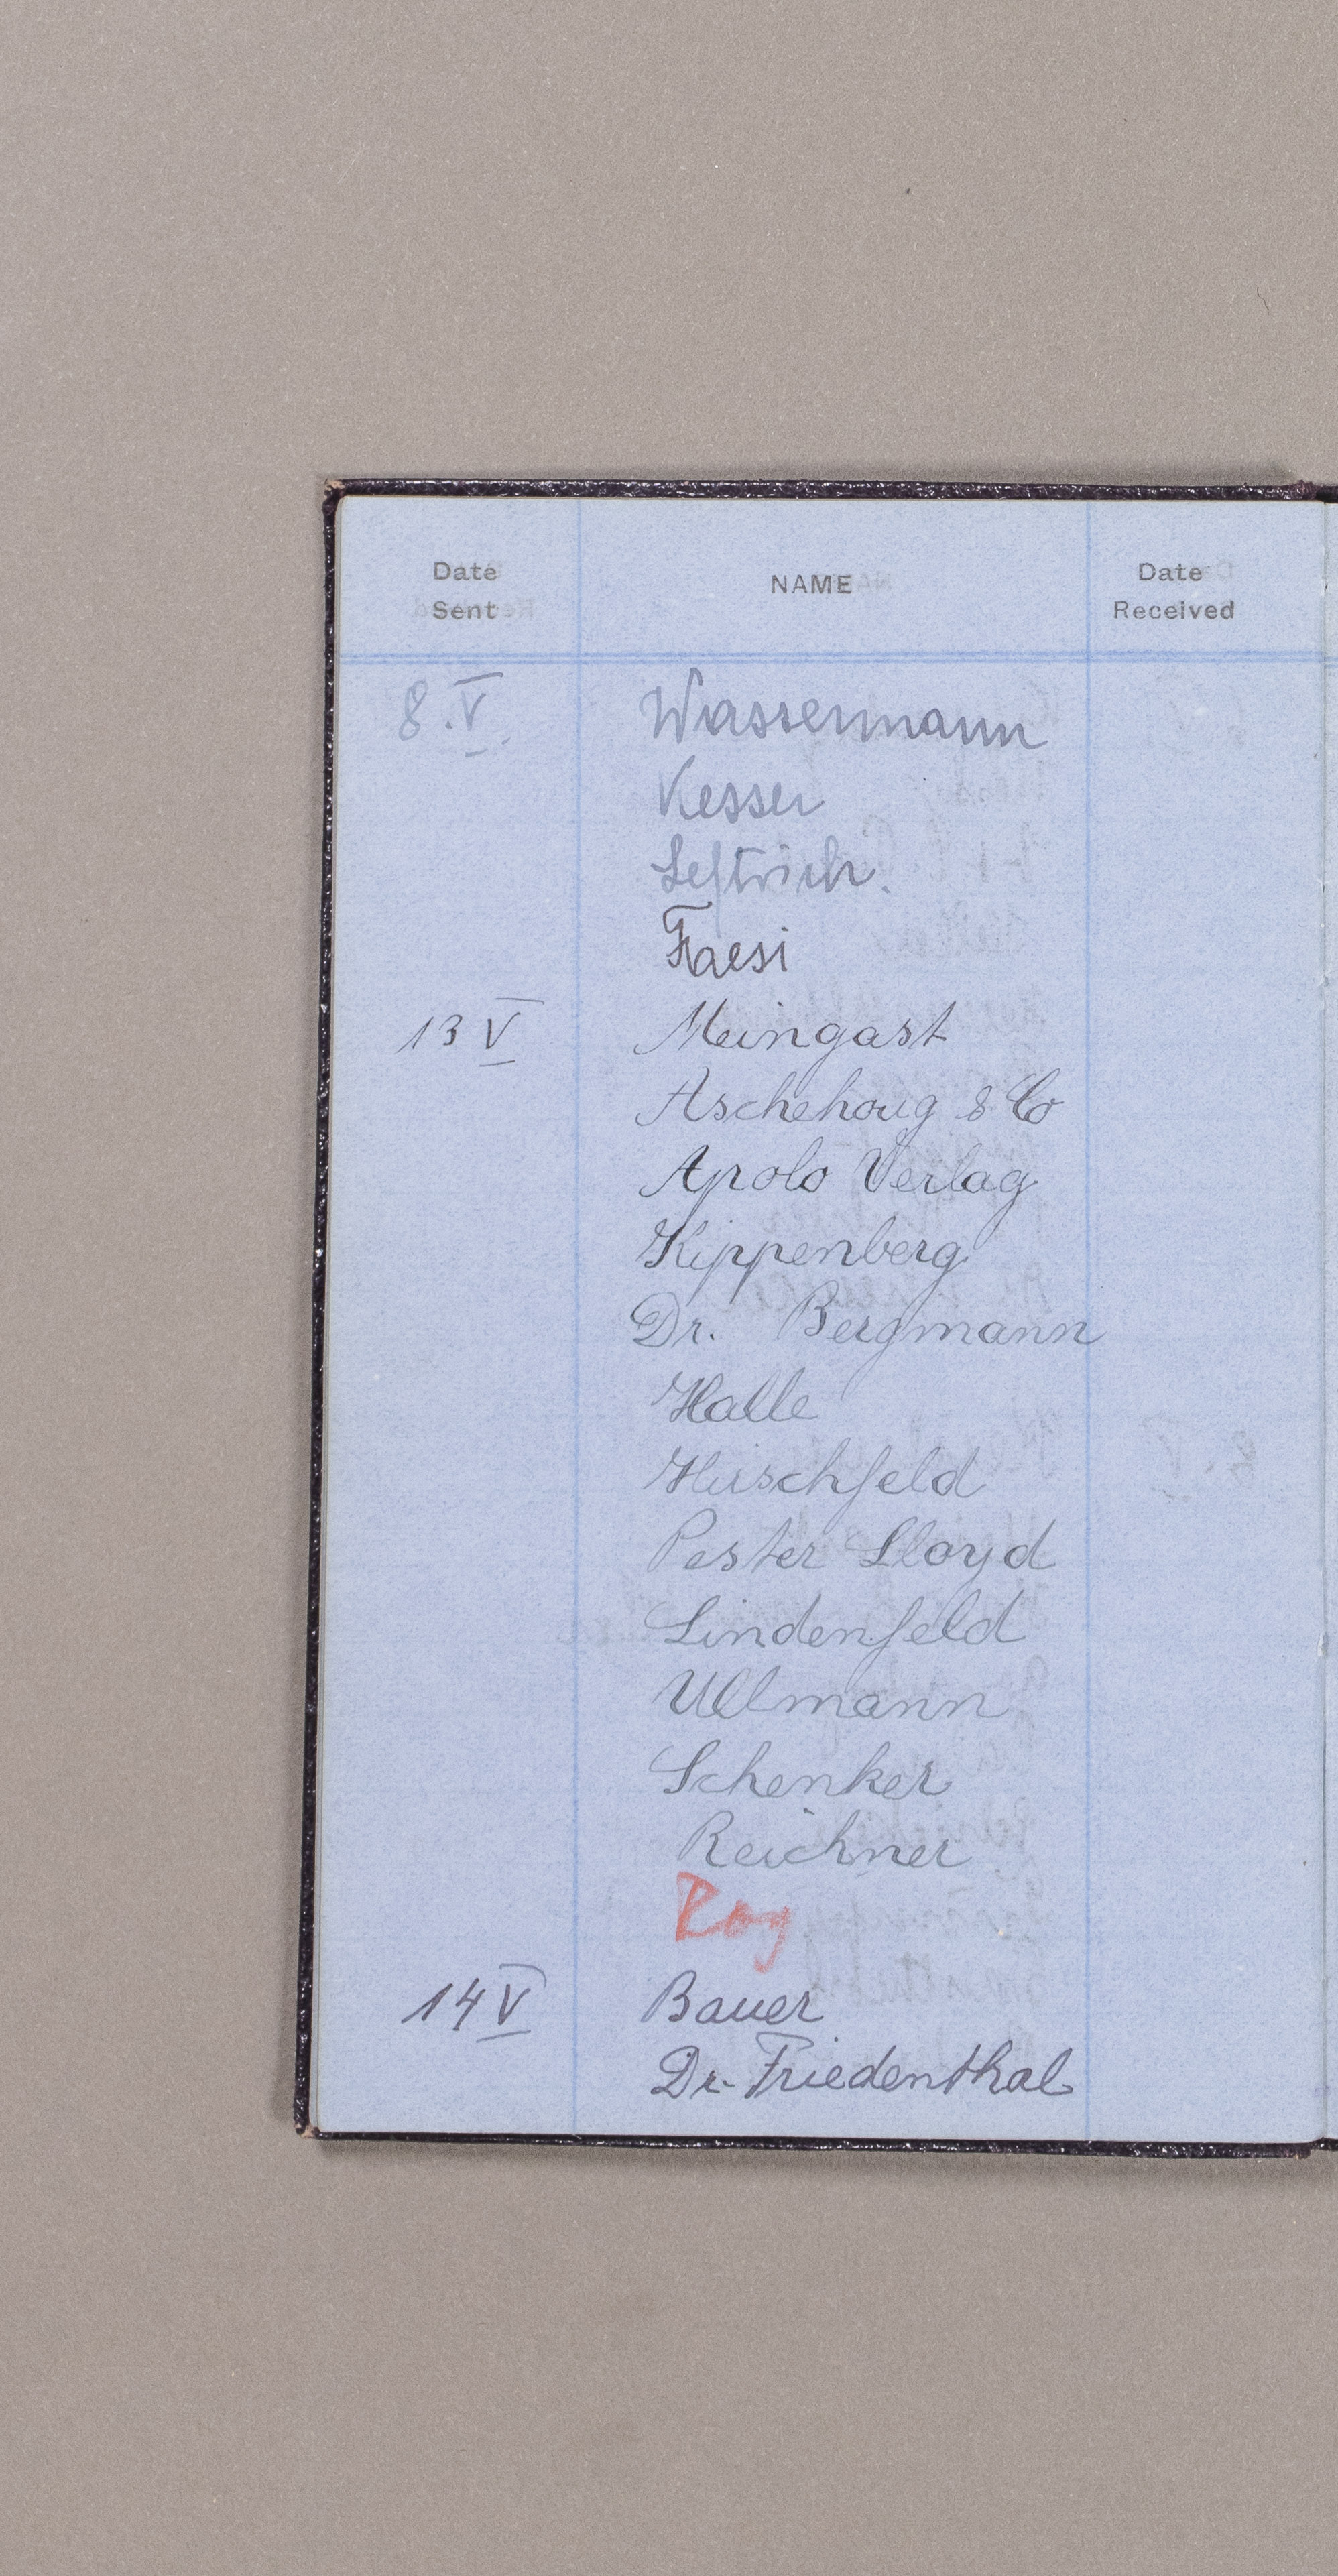 Date Sent NAME Date Received
8.V. Wassermann
Kesser
Leftwich.
Faesi
13 V Meingast
Aschehoug & Co
Apolo Verlag
Kippenberg
Dr. Bergmann
Halle
Hirschfeld
Pester Lloyd
Lindenfeld
Ullmann
Schenker
Reichner
Roy
14 V Bauer
Dr. Friedenthal